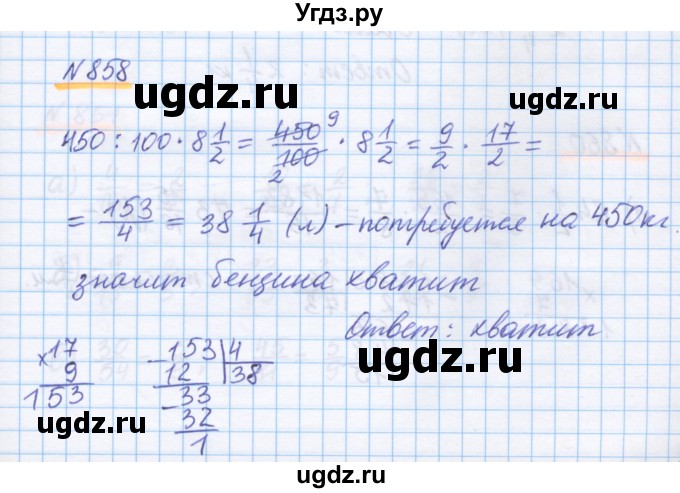 Угдз.ру
N 858
ugdz.ru ugdz.ru
450 : 100 · 8 1/2 = 450/100 9 2 · 8 1/2 = 9/2 · 17/2 =
= 153/4 = 38 1/4 (л) – потребуется на 450 кг.
ugdz.ru ugdz.ru
значит бензина хватит
Ответ: хватит
× 17
9
153
– 153 | 4
12 | 38
– 33
32
1
ugdz.ru ugdz.ru
ugdz.ru